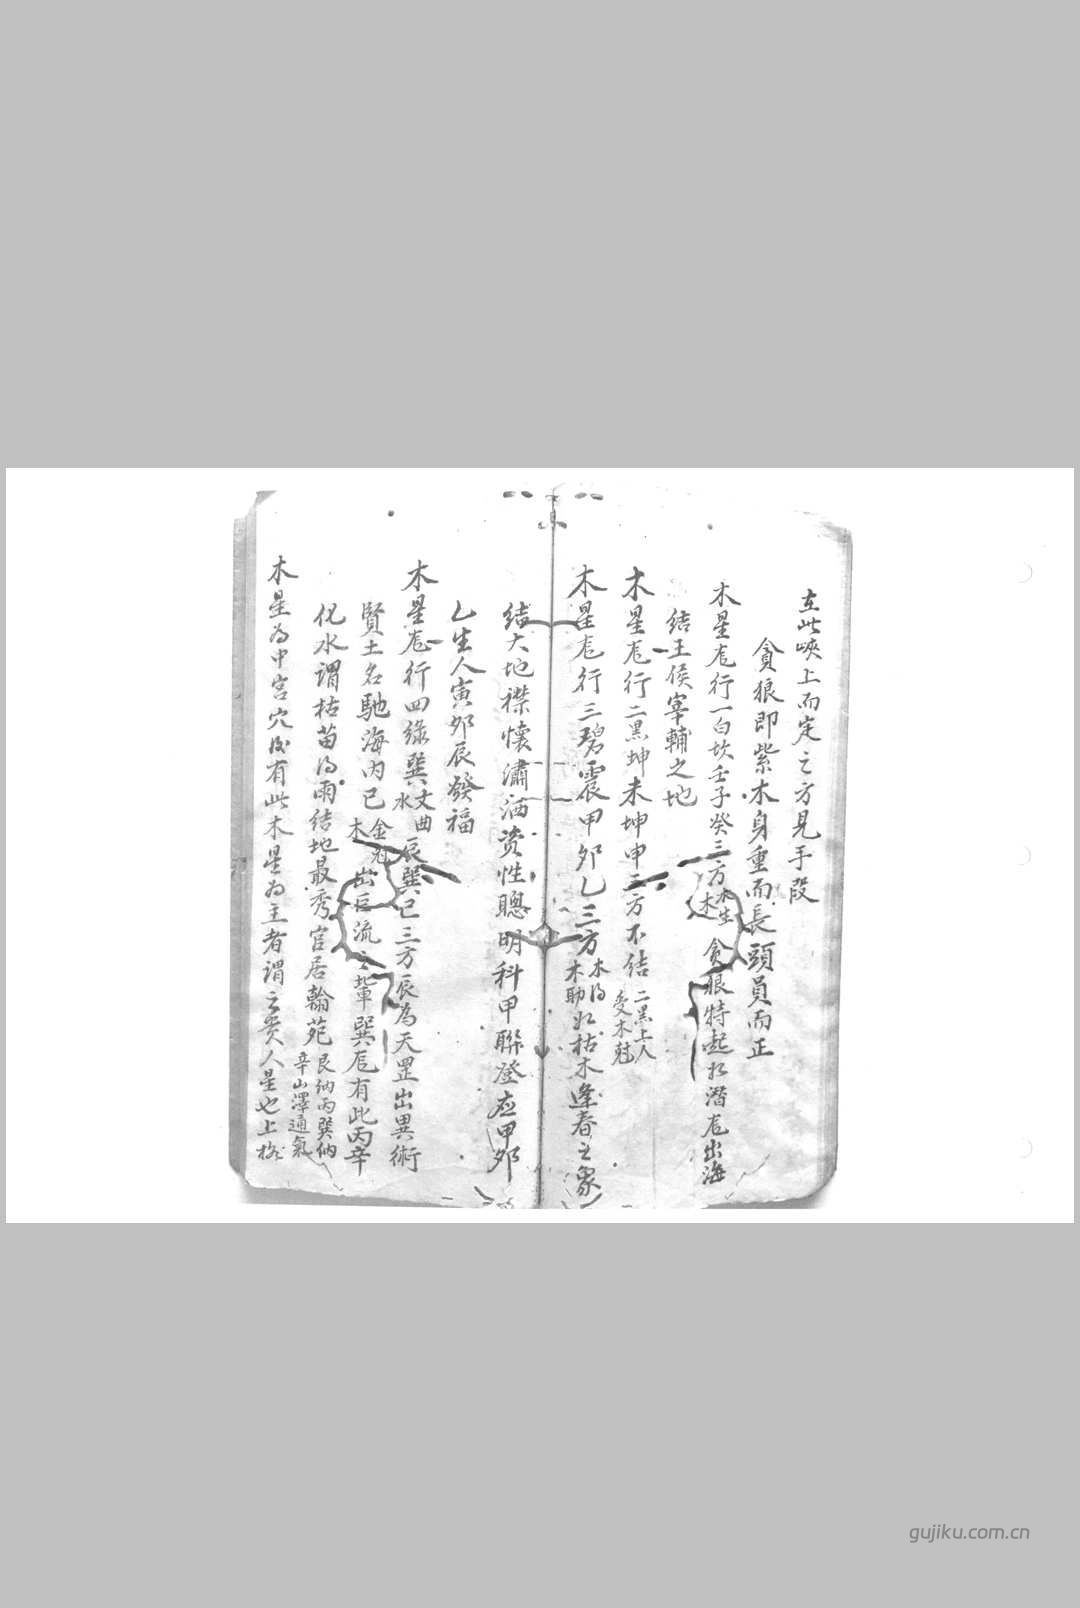 在此峽上而定之方見手段
貪狼即紫木身重而長頭員而正
木星龙行一白坎壬子癸三方水生木貪狼特起如潛龙出海
結王侯宰輔之地
木星龙行二黑坤未坤申三方不結二黑土人受木尅
木星龙行三碧震甲夘乙三方木得木助如枯木逢春之象
結大地襟懷瀟洒资性聰明科甲聯登应甲夘
乙生人寅夘辰發福
木星龙行四綠巽文曲水辰巽巳三方辰為天罡出異術
賢士名馳海内巳金木出巨流之輩巽龙有此丙辛
化水謂枯苗得雨結地最秀官居翰苑艮納丙巽納辛山澤通氣
木星为中宫穴后有此木星为主者谓之贵人星也上格
gujiku.com.cn